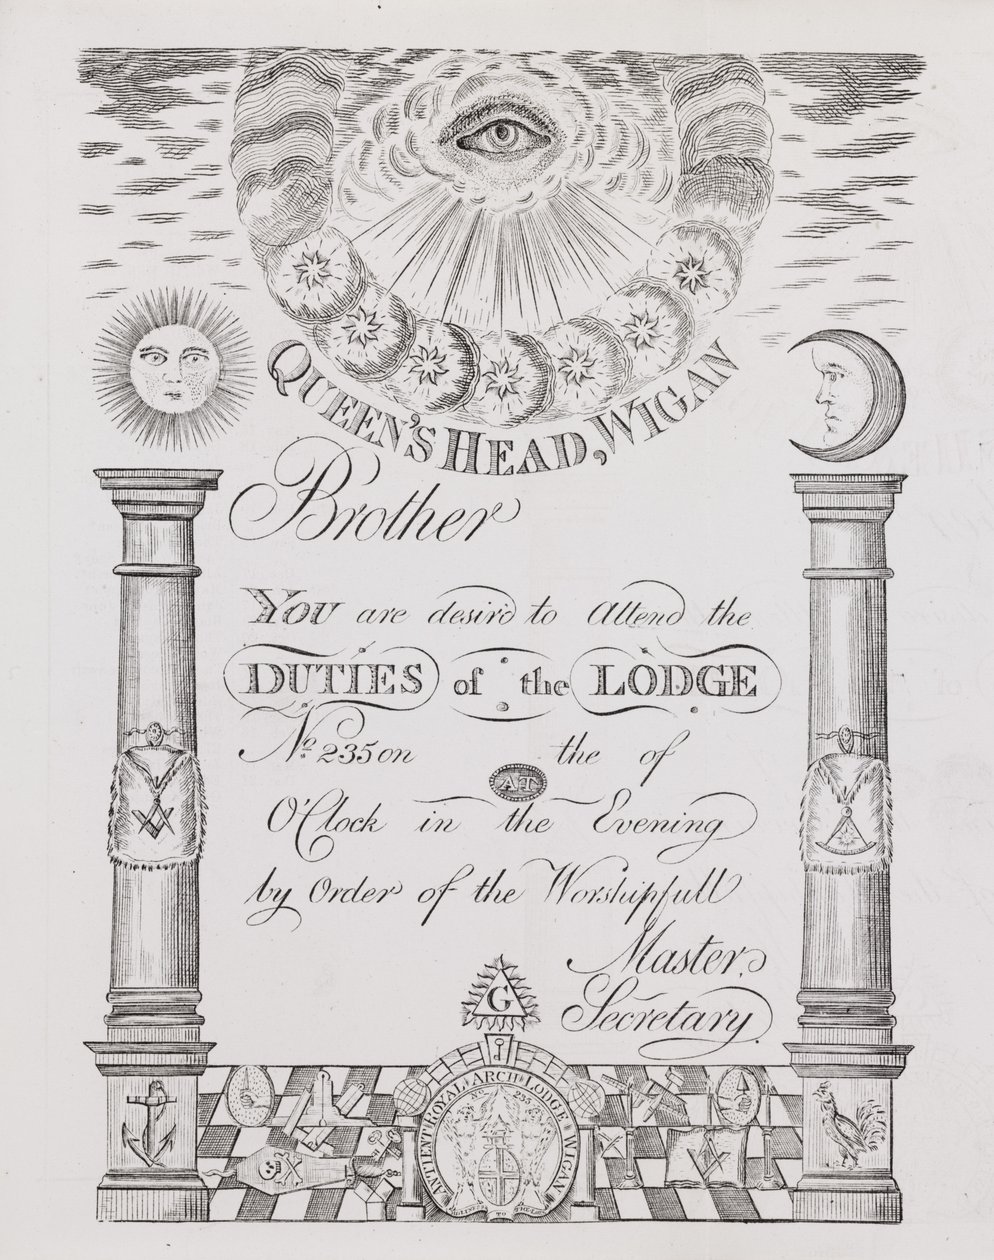 QUEEN'S HEAD, WIGAN
Brother
YOU are desir'd to Attend the
DUTIES of the LODGE
No. 235 on the of
AT
O'Clock in the Evening
by Order of the Worshipfull
Master.
Secretary.
G
ANTIENT ROYAL ARCH LODGE WIGAN
No 235
TO THE LORD